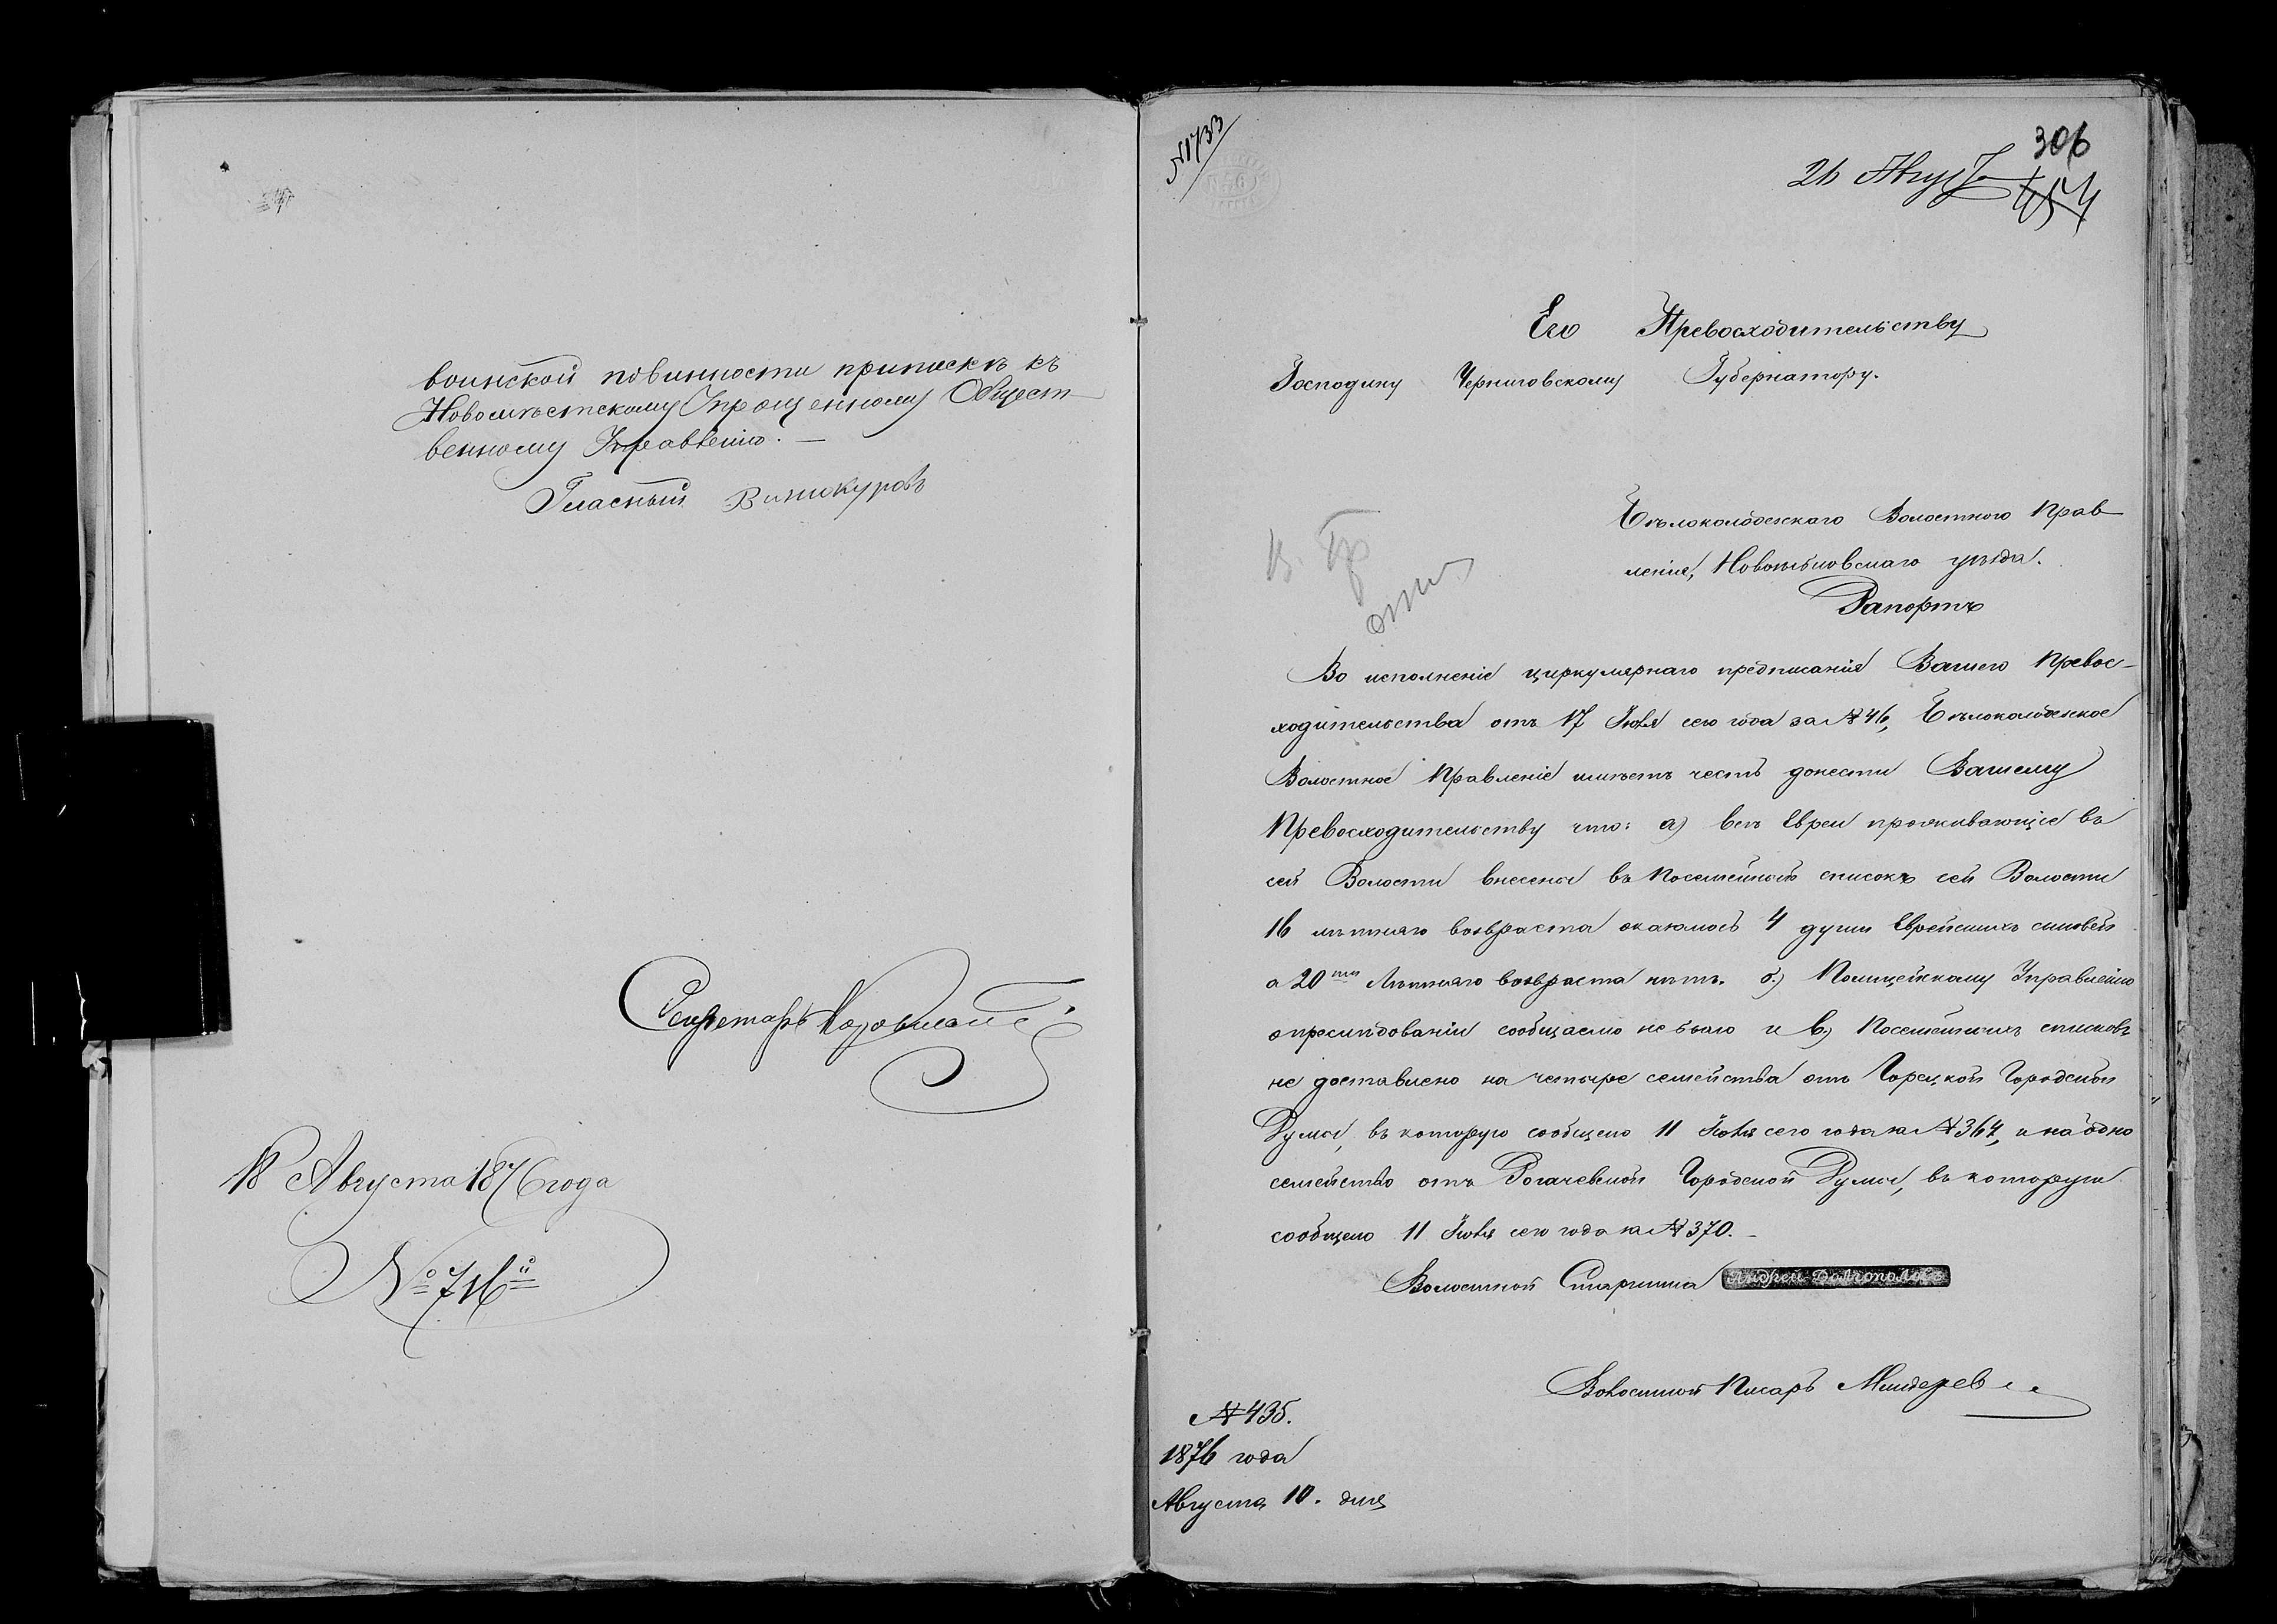 воинской повинности припискѣ къ
Новомѣстскому Упрощенному Общест-
венному Управленію. —
Гласный Винокуровъ
Секретарь
18 Августа 1876 года
№ 716й
№1733
306
26 Августа
454
Его Превосходительству
Господину Черниговскому Губернатору.
Бѣлоколодезскаго Волостного Прав-
ленія, Новозыбковскаго уѣзда.
Рапортъ
Во исполненіе циркулярнаго предписанія Вашего Превос-
ходительства отъ 17 Іюля сего года за № 46, Бѣлоколодезское
Волостное Правленіе имѣетъ честь донести Вашему
Превосходительству что: а) всѣ Евреи проживающіе въ
сей Волости внесены въ Посемейный списокъ сей Волости
16 лѣтняго возвраста оказалось 4 души Еврейскихъ сыновей
а 20ти Лѣтняго возвраста нѣтъ. б.) Полицейскому Управленію
о преслѣдованіи сообщаемо не было и в.) Посемейныхъ списковъ
не доставлено на четыре семейства отъ Горецкой Городской
Думы, въ которую сообщено 11 Іюля сего года за № 367, и на одно
семейство отъ Рогачевской Городской Думы, въ которую
сообщено 11 Іюля сего года за № 370. —
Волостной Старшина Андрей Долгополовъ
Волостной Писарь
№ 435.
1876 года
Августа 10. дня